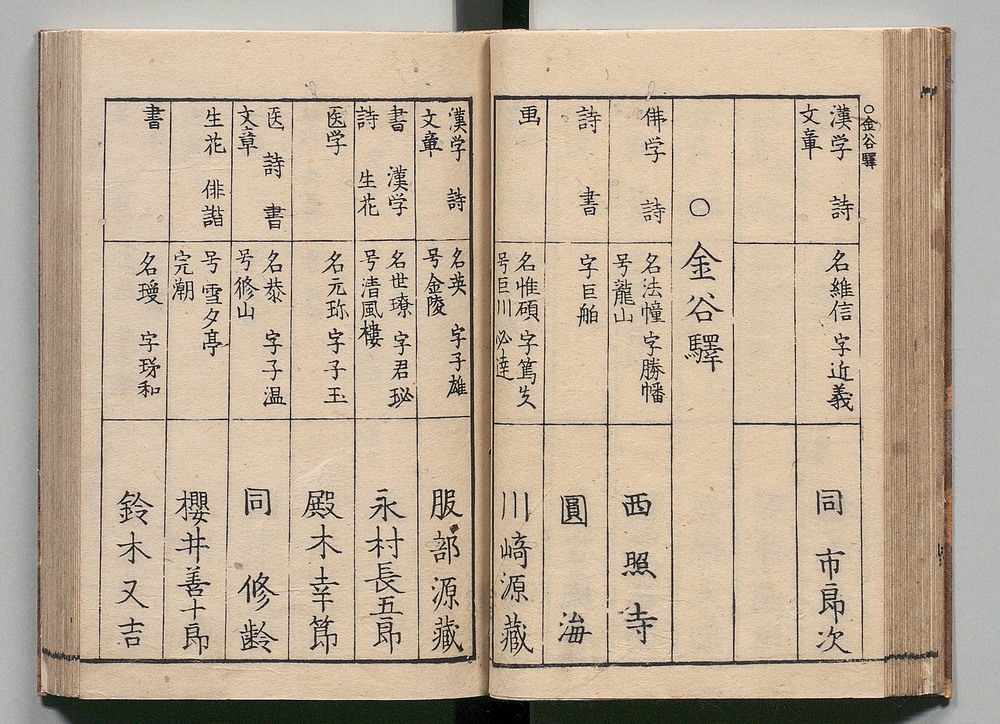 ○金谷驛
漢学 詩
文章
名維信 字近義
同 市郎次
○金谷驛
佛学 詩
名法幢 字勝幡
号龍山
西照寺
詩 書
字巨舶
圓海
画
名惟碩 字篤
号巨川 必達
川崎源藏
漢学 詩
文章
名英 字子雄
号金陵
服部源藏
書 漢学
詩 生花
名世璙 字君珌
号清風樓
永村長五郎
医学
名元珎 字子玉
殿木幸節
医 詩 書
文章
名恭 字子温
号修山
同 修齡
生花 俳諧
号雪夕亭
完潮
櫻井善十郎
書
名瓊 字琇和
鈴木又吉